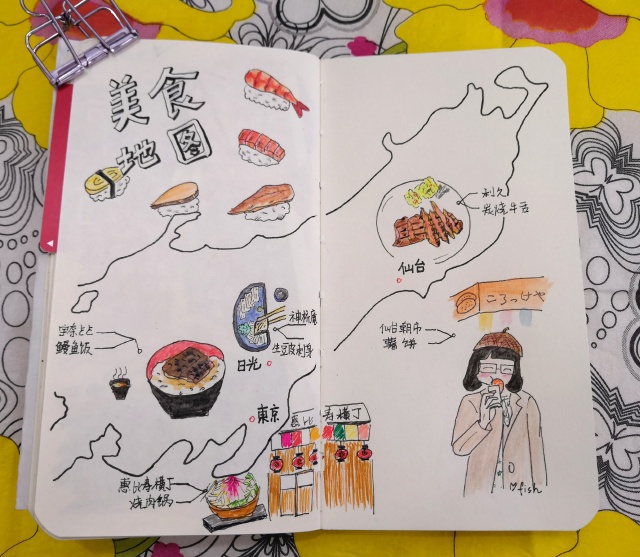 美食
地图
利久
炭烧牛舌
仙台
ころっけや
仙台朝市
薯饼
生豆皮刺身
日光
鳗鱼饭
東京
恵比寿横丁
恵比寿横丁
烧肉锅
fish